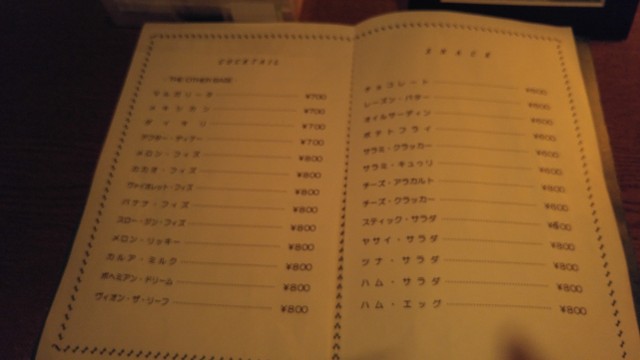 COCKTAIL
マルガリータ ¥700
メキシカン ¥700
ダイキリ ¥700
アフター・ディナー ¥700
メロン・フィズ ¥800
カカオ・フィズ ¥800
ヴァイオレット・フィズ ¥800
バナナ・フィズ ¥800
スロー・ジン・フィズ ¥800
メロン・リッキー ¥800
カルア・ミルク ¥800
ボヘミアン・ドリーム ¥800
ヴィオン・ザ・リーフ ¥800
SNACK
チョコレート ¥600
レーズン・バター ¥600
オイルサーディン ¥600
ポテトフライ ¥600
サラミ・クラッカー ¥600
サラミ・キュウリ ¥600
チーズ・アラカルト ¥800
チーズ・クラッカー ¥600
スティック・サラダ ¥600
ヤサイ・サラダ ¥800
ツナ・サラダ ¥800
ハム・サラダ ¥800
ハム・エッグ ¥800